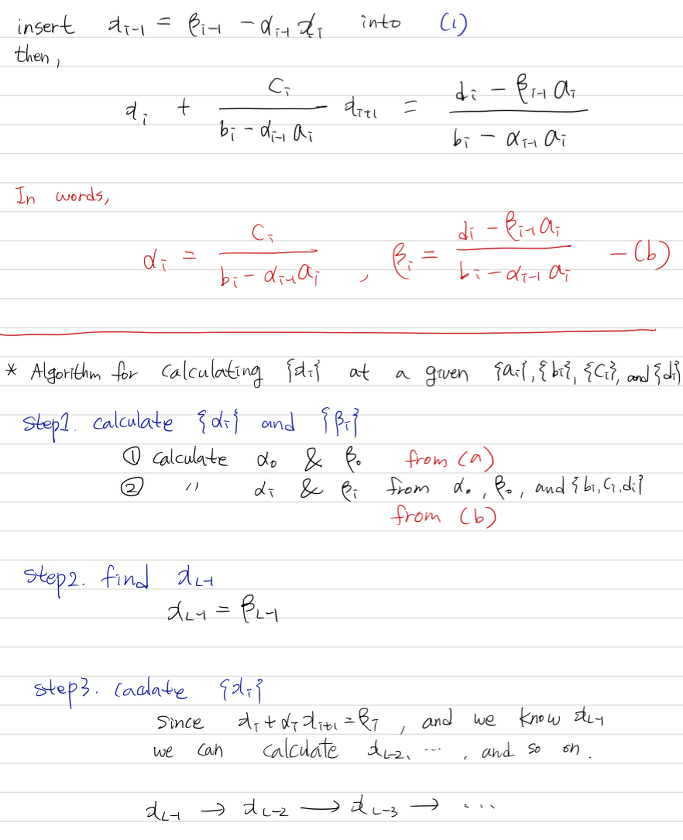 insert x_{i-1} = β_{i-1} - α_{i-1} x_i into (1)
then,
x_i + \frac{c_i}{b_i - α_{i-1} a_i} x_{i+1} = \frac{d_i - β_{i-1} a_i}{b_i - α_{i-1} a_i}
In words,
α_i = \frac{c_i}{b_i - α_{i-1} a_i} , β_i = \frac{d_i - β_{i-1} a_i}{b_i - α_{i-1} a_i} - (b)
* Algorithm for calculating {x_i} at a given {a_i}, {b_i}, {c_i}, and {d_i}
Step1. calculate {α_i} and {β_i}
① calculate α_0 & β_0 from (a)
② 〃 α_i & β_i from α_0, β_0, and {b_i, c_i, d_i}
from (b)
Step2. find x_{L-1}
x_{L-1} = β_{L-1}
Step3. caclate {x_i}
Since x_i + α_i x_{i+1} = β_i , and we know x_{L-1}
we can calculate x_{L-2}, ... , and so on.
x_{L-1} → x_{L-2} → x_{L-3} → ...